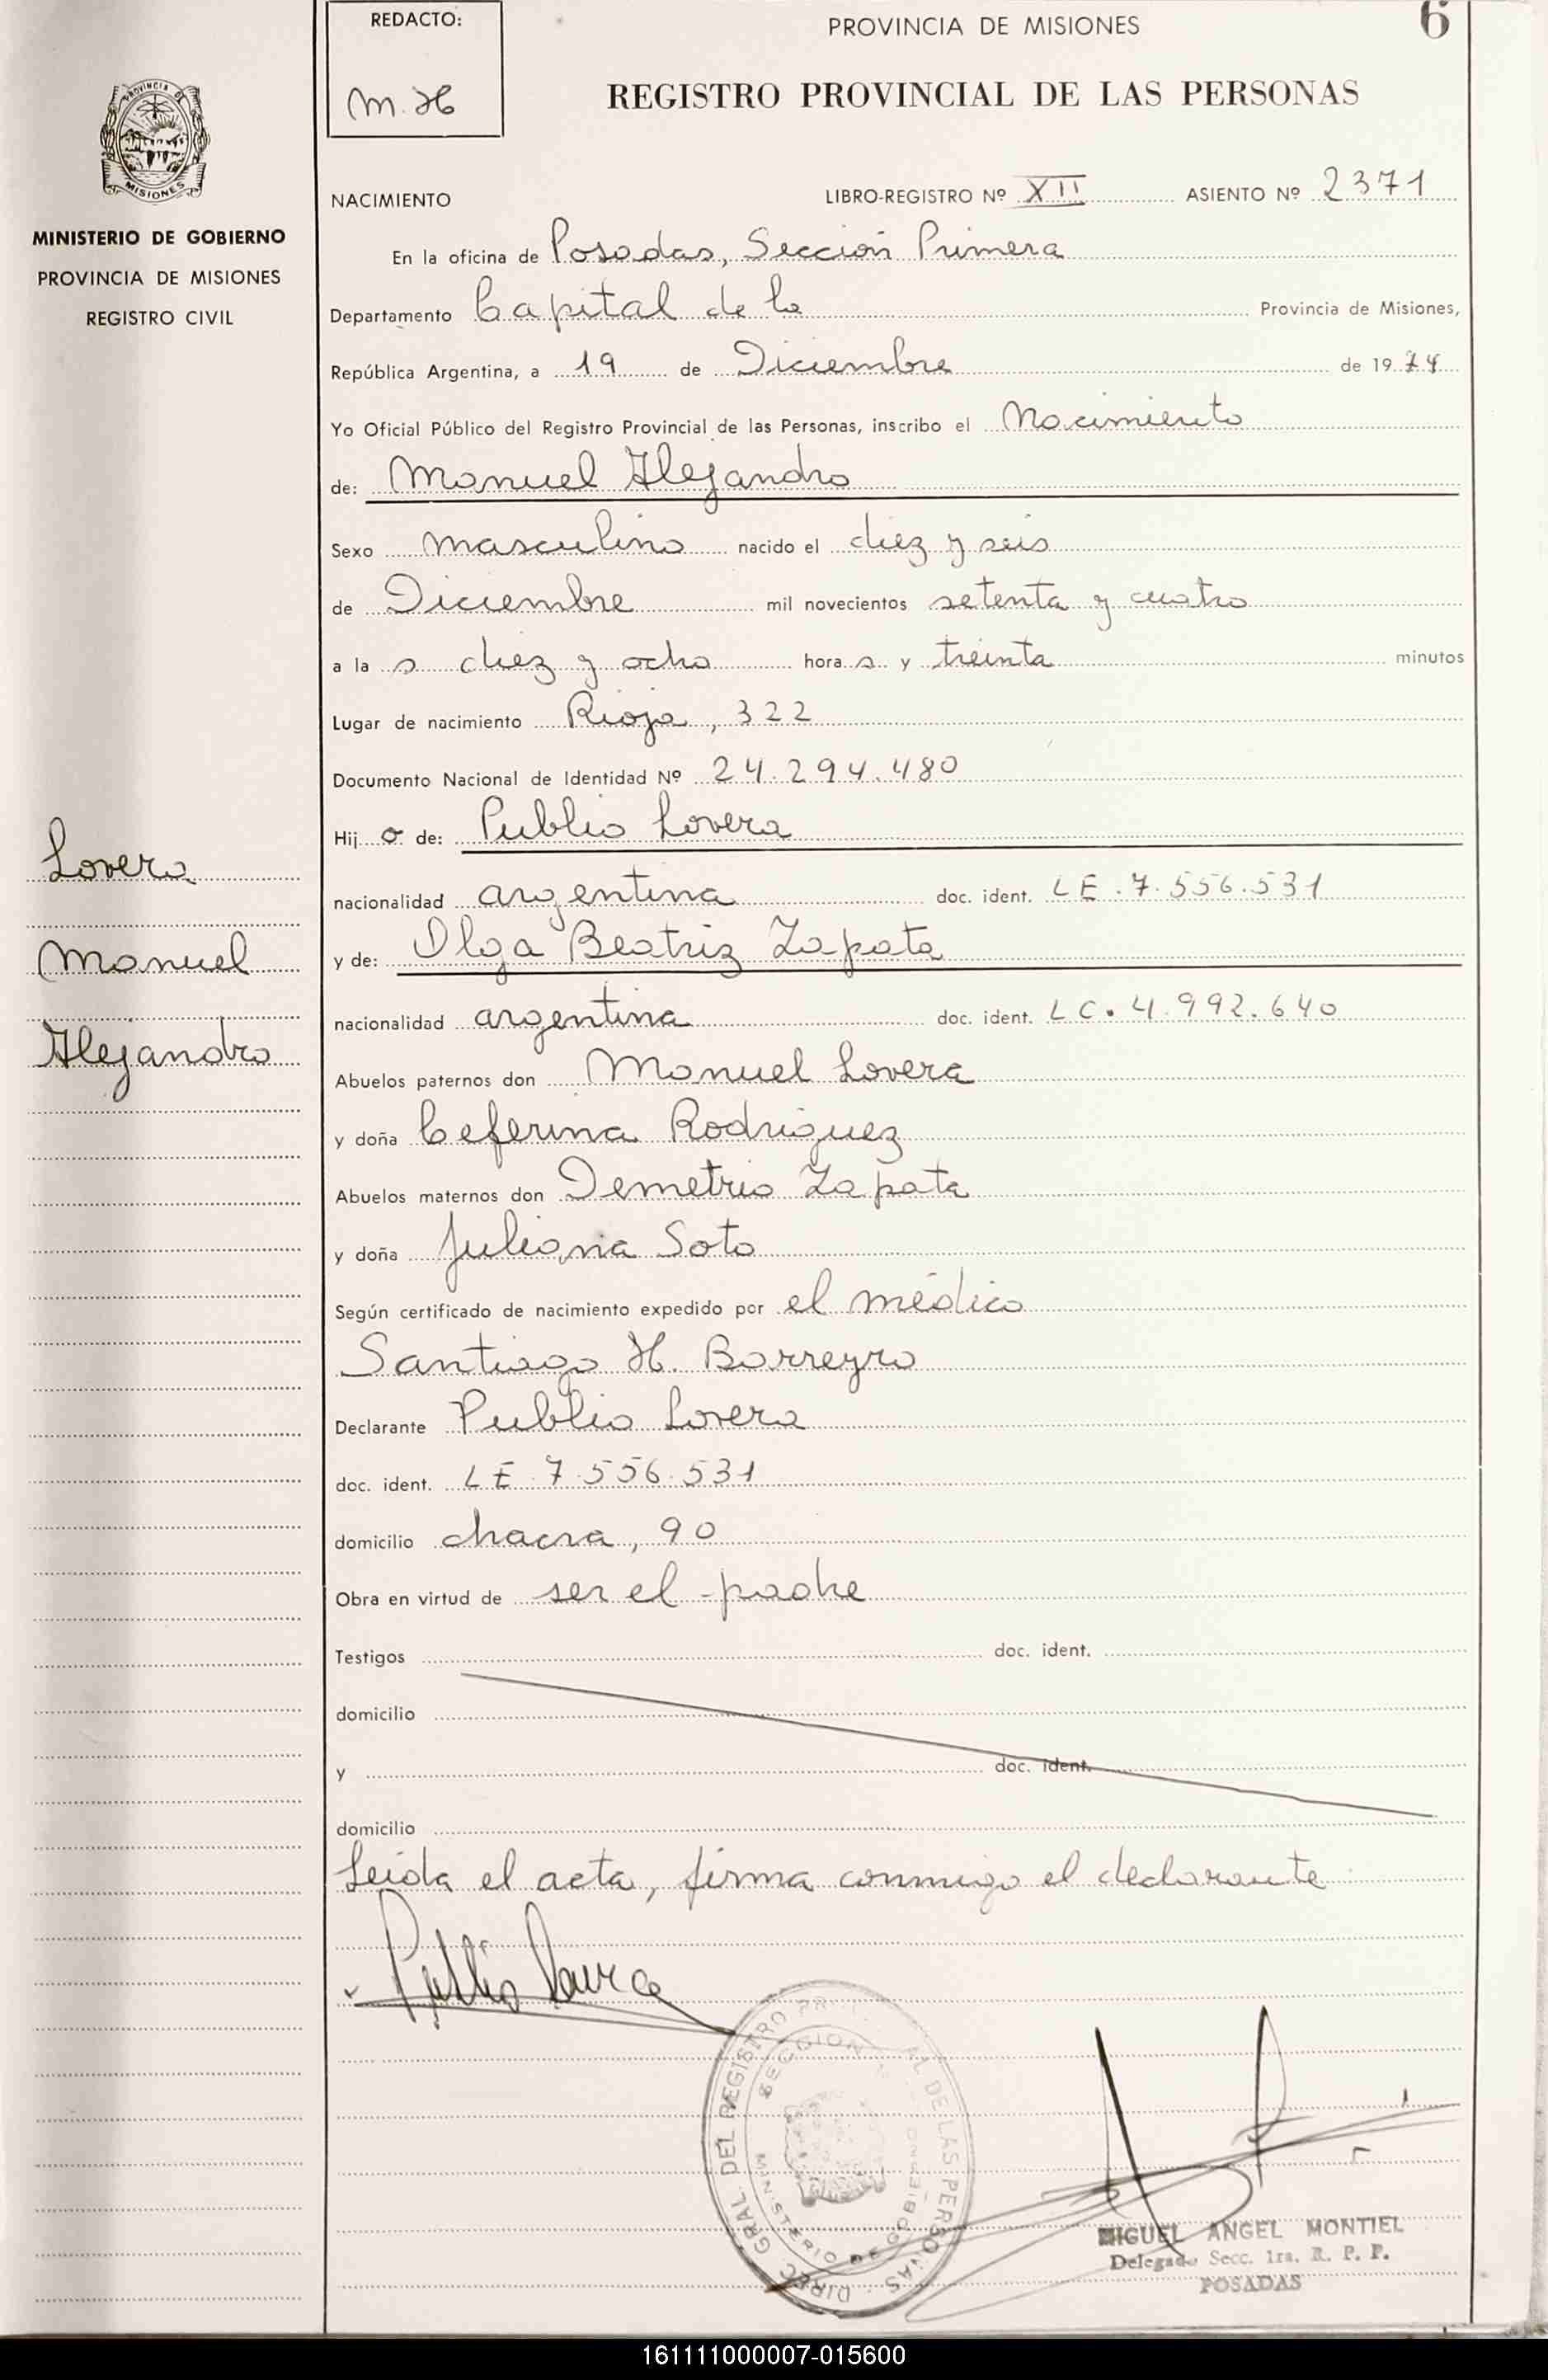 REDACTO:
M. H
PROVINCIA DE MISIONES
6
REGISTRO PROVINCIAL DE LAS PERSONAS
PROVINCIA DE
MISIONES
MINISTERIO DE GOBIERNO
PROVINCIA DE MISIONES
REGISTRO CIVIL
NACIMIENTO
LIBRO-REGISTRO Nº XII ASIENTO Nº 2371
En la oficina de Posadas, Sección Primera
Departamento Capital de la Provincia de Misiones,
República Argentina, a 19 de Diciembre de 1974
Yo Oficial Público del Registro Provincial de las Personas, inscribo el Nacimiento
de: Manuel Alejandro
Sexo masculino nacido el diez y seis
de Diciembre mil novecientos setenta y cuatro
a la s diez y ocho hora s y treinta minutos
Lugar de nacimiento Rioja, 322
Documento Nacional de Identidad Nº 24.294.480
Hij o de: Publio Lovera
nacionalidad argentina doc. ident. LE. 7.556.531
y de: Olga Beatriz Zapata
nacionalidad argentina doc. ident. LC. 4.992.640
Abuelos paternos don Manuel Lovera
y doña Ceferina Rodriguez
Abuelos maternos don Demetrio Zapata
y doña Juliana Soto
Según certificado de nacimiento expedido por el médico
Santiago H. Barreyro
Declarante Publio Lovera
doc. ident. LE. 7.556.531
domicilio chacra, 90
Obra en virtud de ser el padre
Testigos doc. ident.
domicilio
y doc. ident.
domicilio
Leída el acta, firma conmigo el declarante
Lovera
Manuel
Alejandro
Publio Lovera
DIREC. GRAL. DEL REGISTRO PR AL DE LAS PERSONAS
SECCION
MINISTERIO DE GOBIERNO
MIGUEL ANGEL MONTIEL
Delegado Secc. 1ra. R. P. P.
POSADAS
161111000007-015600